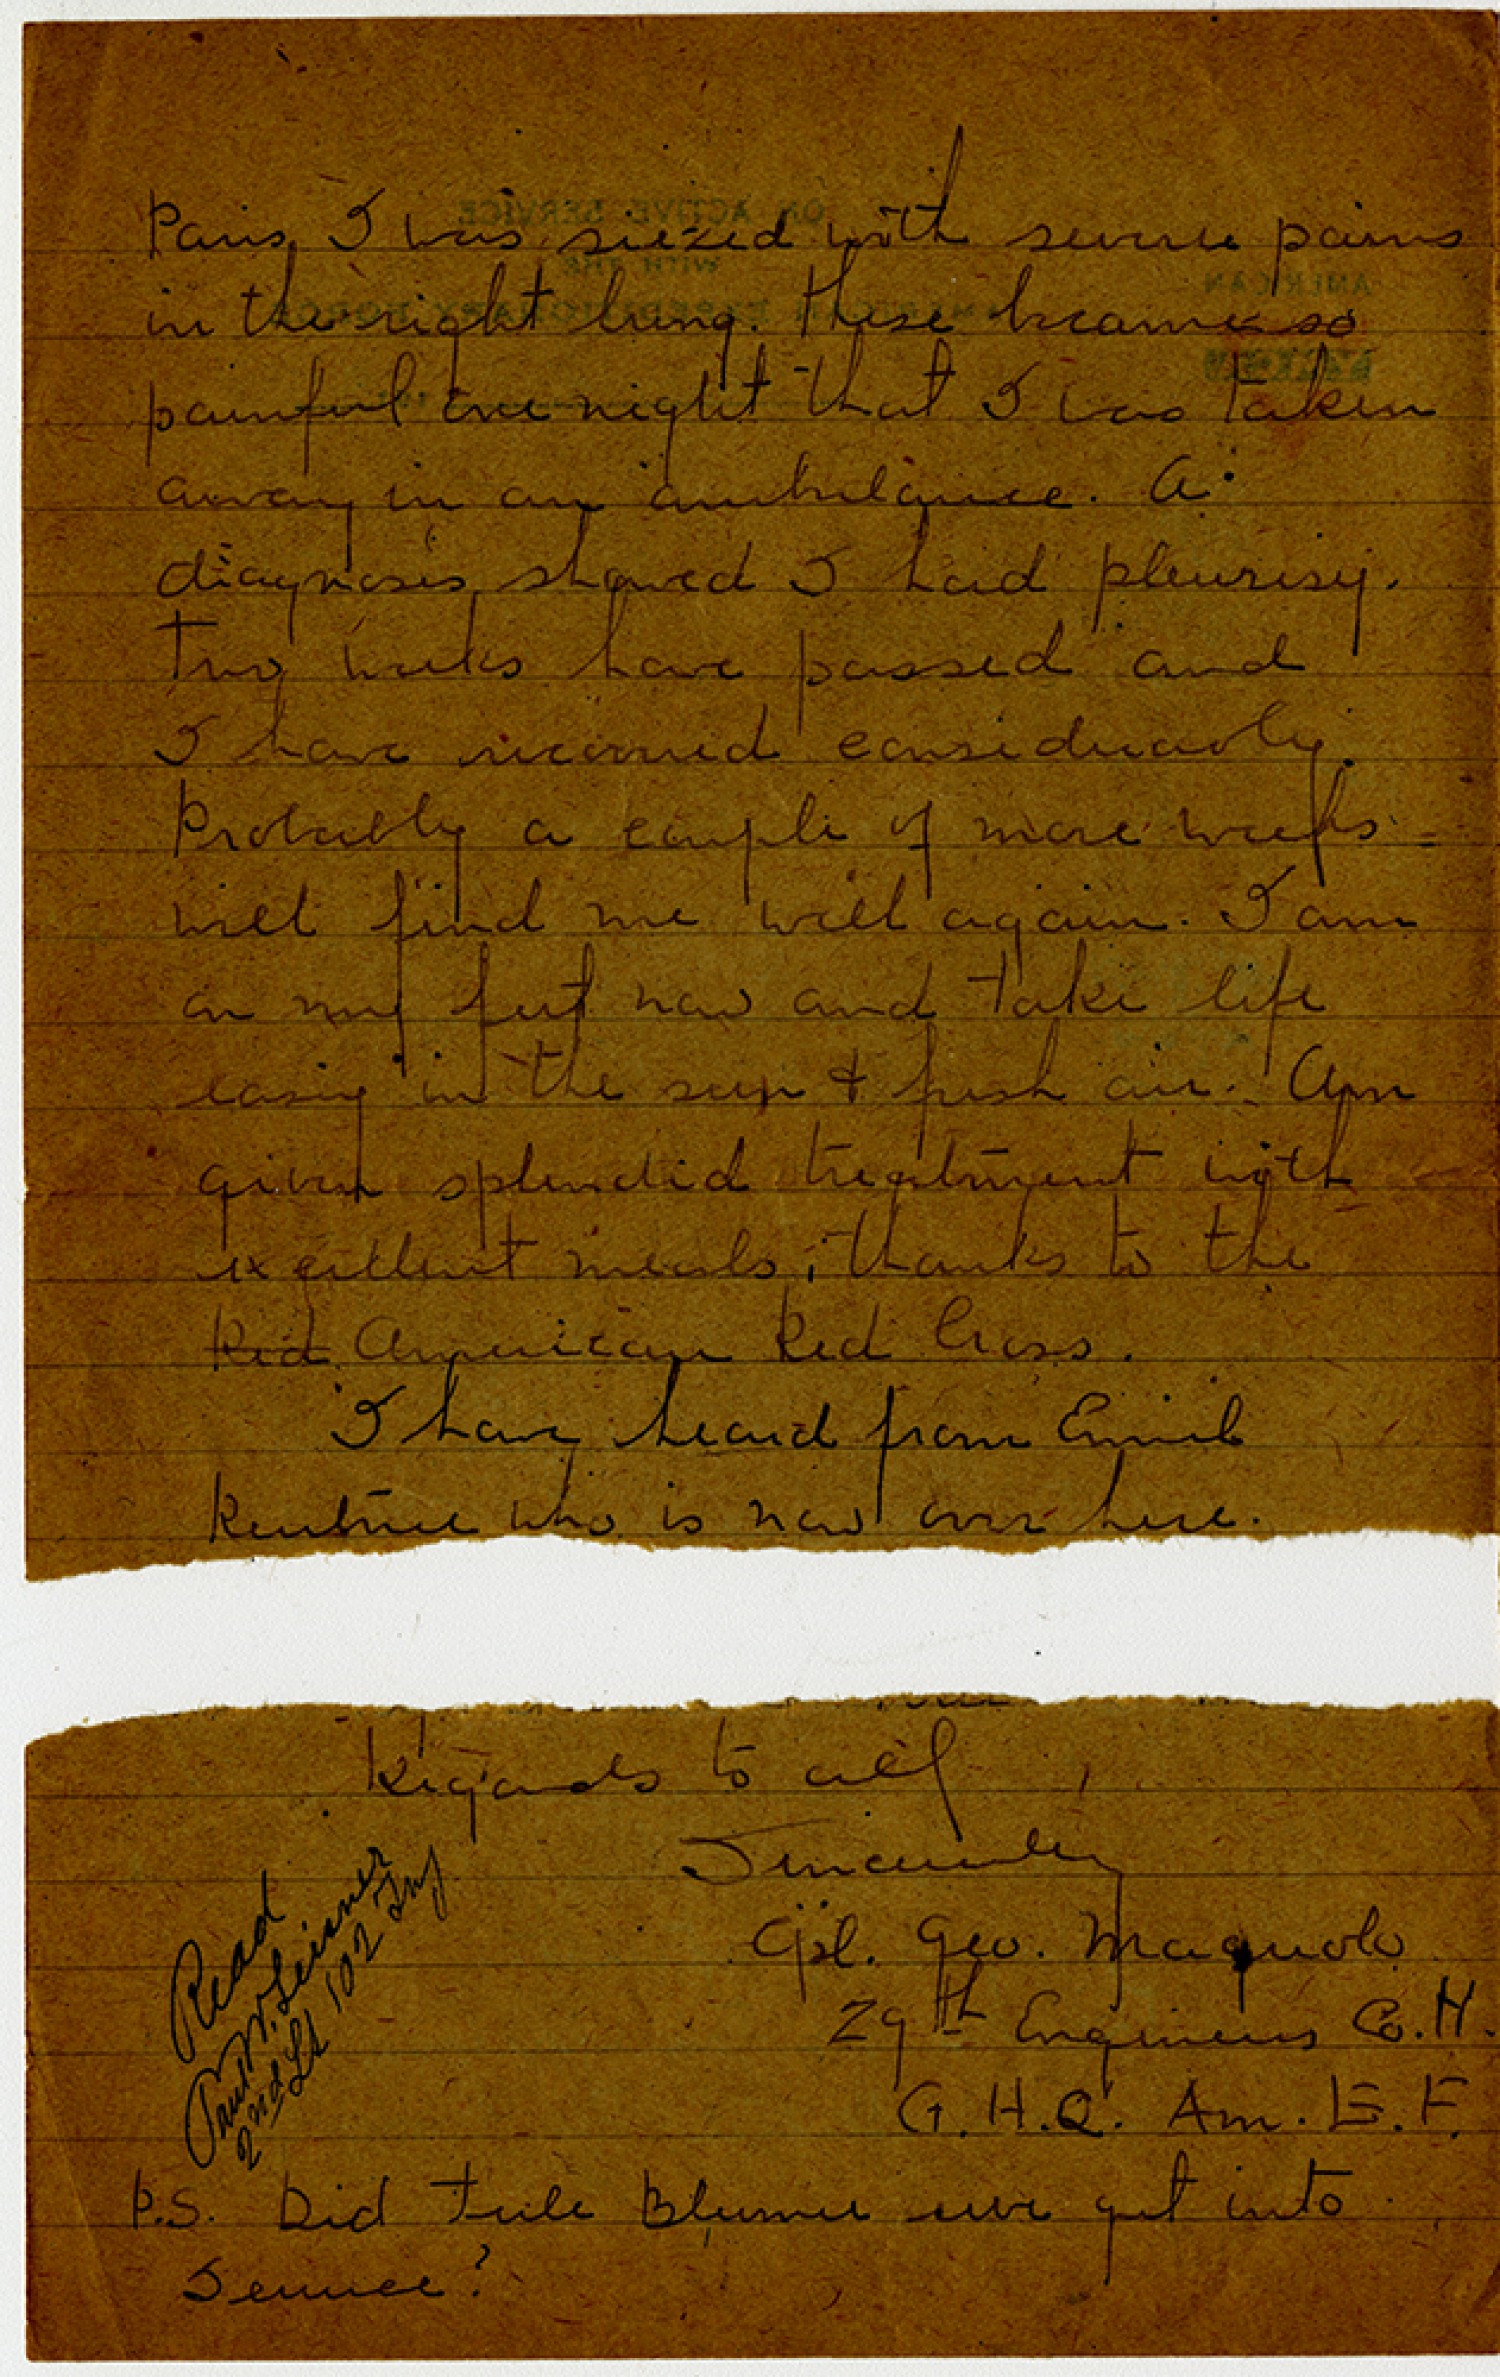 Paris, I was siezed with severe pains
in the right lung. These became so
painful one night that I was taken
away in an ambulance. A
diagnosis showed I had pleurisy.
Two weeks have passed and
I have recovered considerably.
Probably a couple of more weeks
will find me well again. I am
on my feet now and take life
easy in the sun & fresh air. Am
given splendid treatment with
excellent meals, thanks to the
Red American Red Cross.
I have heard from Emil
who is now over here.
Regards to all
Sincerely
Cpl. Geo.
29th Engineers Co. H.
G. H. Q. Am. E. F.
Read
W.
2nd Lt 102 Inf
P.S. Did ever get into
Service?
ON ACTIVE SERVICE
WITH THE
AMERICAN EXPEDITIONARY FORCE
AMERICAN